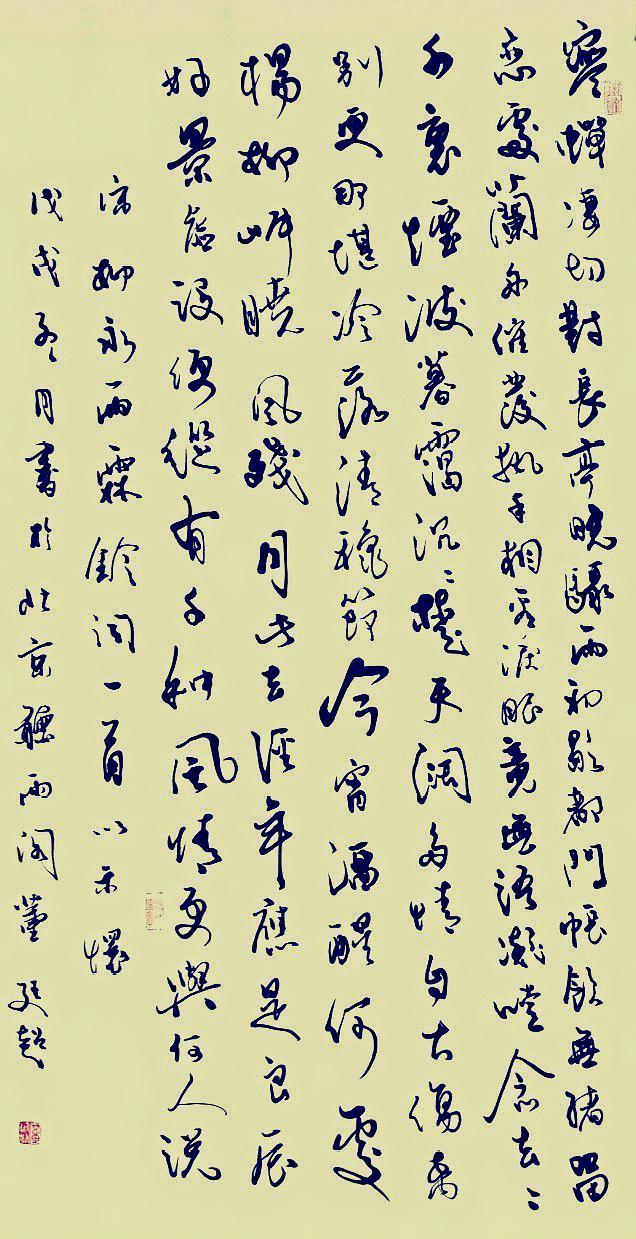 寒蟬淒切對長亭晚驟雨初歇都門帳飲無緒留
戀處蘭舟催發執手相看淚眼竟無語凝噎念去〻
千裏煙波暮靄沉〻楚天闊多情自古傷离
別更那堪冷落清穐節今宵酒醒何處
楊柳岸曉風殘月此去經年應是良辰
好景虛設便縱有千种風情更與何人說
宋柳永雨霖鈴詞一首以示懷
戊戌冬月書於北京聽雨閣董廷超